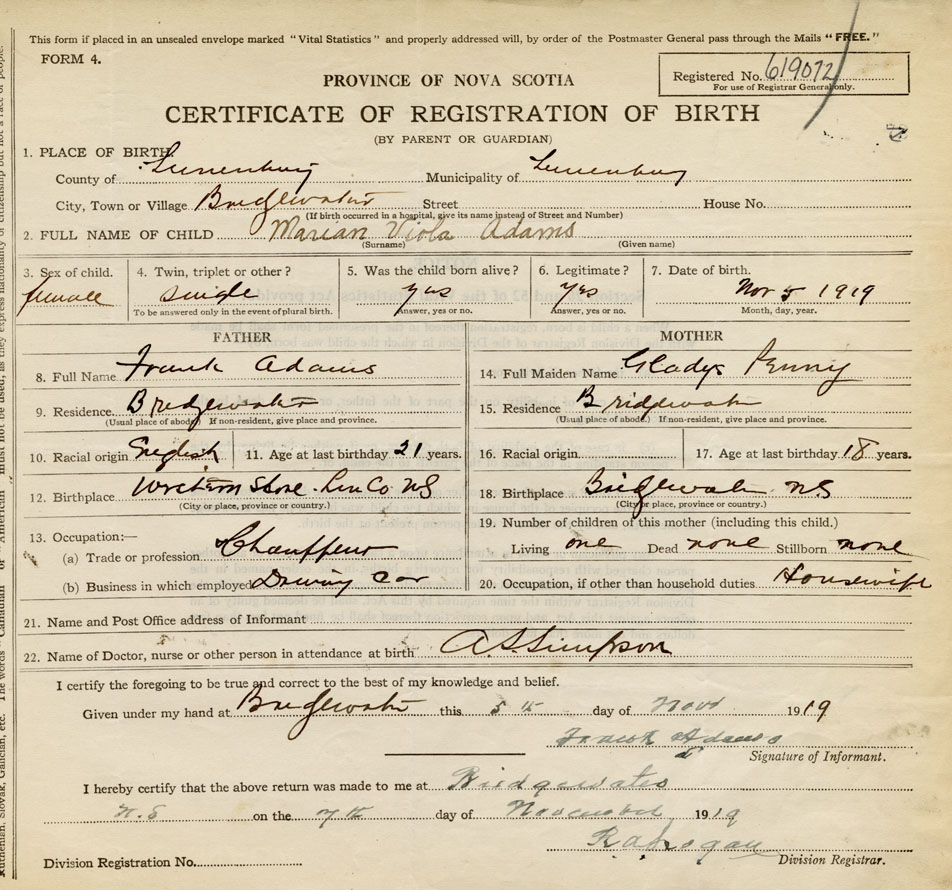 This form if placed in an unsealed envelope marked "Vital Statistics" and properly addressed will, by order of the Postmaster General pass through the Mails "FREE."
FORM 4.
Registered No. 619072
For use of Registrar General only.
PROVINCE OF NOVA SCOTIA
CERTIFICATE OF REGISTRATION OF BIRTH
(BY PARENT OR GUARDIAN)
1. PLACE OF BIRTH
County of Lunenburg Municipality of Lunenburg
City, Town or Village Bridgewater Street House No.
(If birth occurred in a hospital, give its name instead of Street and Number)
2. FULL NAME OF CHILD Marian Viola Adams
(Surname) (Given name)
3. Sex of child. 4. Twin, triplet or other? 5. Was the child born alive? 6. Legitimate? 7. Date of birth.
female single yes yes Nov 5 1919
To be answered only in the event of plural birth. Answer, yes or no. Answer, yes or no. Month, day, year.
FATHER
8. Full Name Frank Adams
9. Residence Bridgewater
(Usual place of abode) If non-resident, give place and province.
10. Racial origin English 11. Age at last birthday 21 years.
12. Birthplace Western Shore Lun Co NS
(City or place, province or country.)
13. Occupation:—
(a) Trade or profession Chauffeur
(b) Business in which employed Driving Car
MOTHER
14. Full Maiden Name Gladys Penny
15. Residence Bridgewater
(Usual place of abode) If non-resident, give place and province.
16. Racial origin 17. Age at last birthday 18 years.
18. Birthplace Bridgewater NS
(City or place, province or country.)
19. Number of children of this mother (including this child.)
Living one Dead none Stillborn none
20. Occupation, if other than household duties Housewife
21. Name and Post Office address of Informant
22. Name of Doctor, nurse or other person in attendance at birth A S Simpson
I certify the foregoing to be true and correct to the best of my knowledge and belief.
Given under my hand at Bridgewater this 5th day of Nov 1919
Frank Adams
Signature of Informant.
I hereby certify that the above return was made to me at Bridgewater
N.S on the 7th day of November 1919
Division Registration No. Division Registrar.